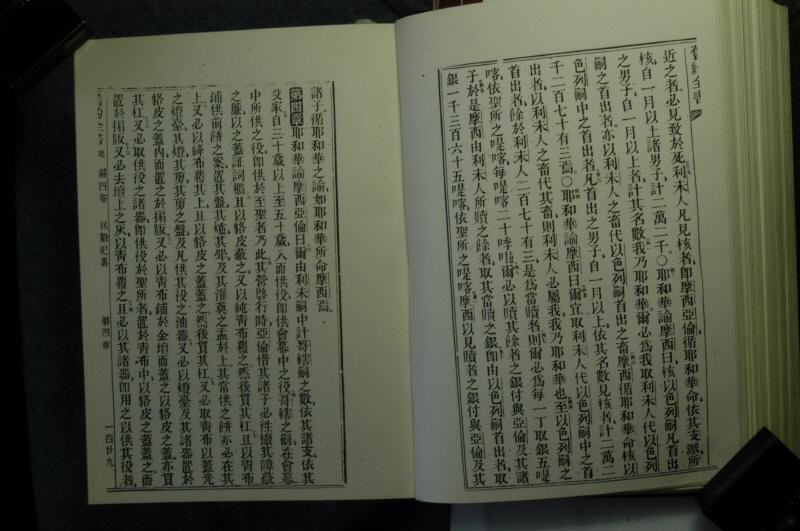 舊約全書
近之者必見致於死利未人凡見核者卽摩西亞倫循耶和華命依其支派所
核自一月以上諸男子計二萬二千〇耶和華諭摩西曰核以色列嗣凡首出
之男子自一月以上者計其名數我乃耶和華爾必爲我取利未人代以色列
嗣之首出者亦以利未人之畜代以色列嗣首出之畜摩西循耶和華命核以
色列嗣中之首出者凡首出之男子自一月以上依其名數見核者計二萬二
千二百七十有三焉〇耶和華諭摩西曰爾宜取利未人代以色列嗣中之首
出者以利未人之畜代其畜則利未人必屬我我乃耶和華也至以色列嗣之
首出者餘於利未人二百七十有三是爲當贖者則爾必爲每一丁取銀五喼
喀依聖所之喼喀每喼喀二十季拉爾必以贖其餘者之銀付與亞倫及其諸
子於是摩西由利未人所贖之餘者取其當贖之銀卽由以色列嗣首出者取
銀一千三百六十五喼喀依聖所之喼喀摩西以見贖者之銀付與亞倫及其
諸子循耶和華之諭如耶和華所命摩西焉
第四章耶和華諭摩西亞倫曰爾由利未嗣中計哥轄嗣之數依其諸支依其
父家自三十歲以上至五十歲入而供役卽供會幕中之役哥轄之嗣在會幕
中所供之役卽供於至聖者乃此其營啓行時亞倫偕其諸子必徃撤其障蔽
之簾以之蓋証詞櫃且以貉皮蔽之又以純靑布覆之然後貫其杠且以靑布
鋪供前餅之案置其盤其爐其斝及其灌奠之盂於上其常供之餅亦必在其
上又必以絳布覆其上且以貉皮之蓋蓋之然後貫其杠又必取靑布以蓋光
之燈臺其燈其剪其剪之盤及凡供其役之油器又必以燈臺及其諸器置於
貉皮之蓋內而置之於揭版又必以靑布鋪於金壇而蓋之以貉皮之蓋蓋之而
其杠又必取供役之諸器卽供役於聖所者置於靑布中以貉皮之蓋蓋之而
置於揭版又必去壇上之灰以靑布覆之且必以其諸器卽用之以供其役者
舊約全書 第四卷 民數紀畧 第四章 一百廿九